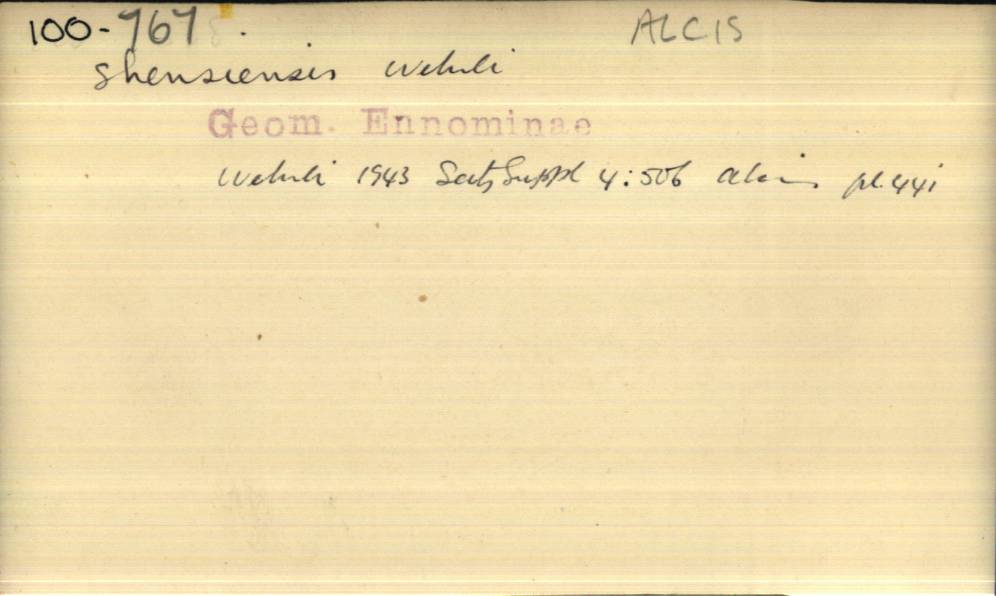 100-767 . ALCIS
shensiensis Wehrli
Geom. Ennominae
Wehrli 1943 Seitz Suppl 4:506 Alcis pl.44i